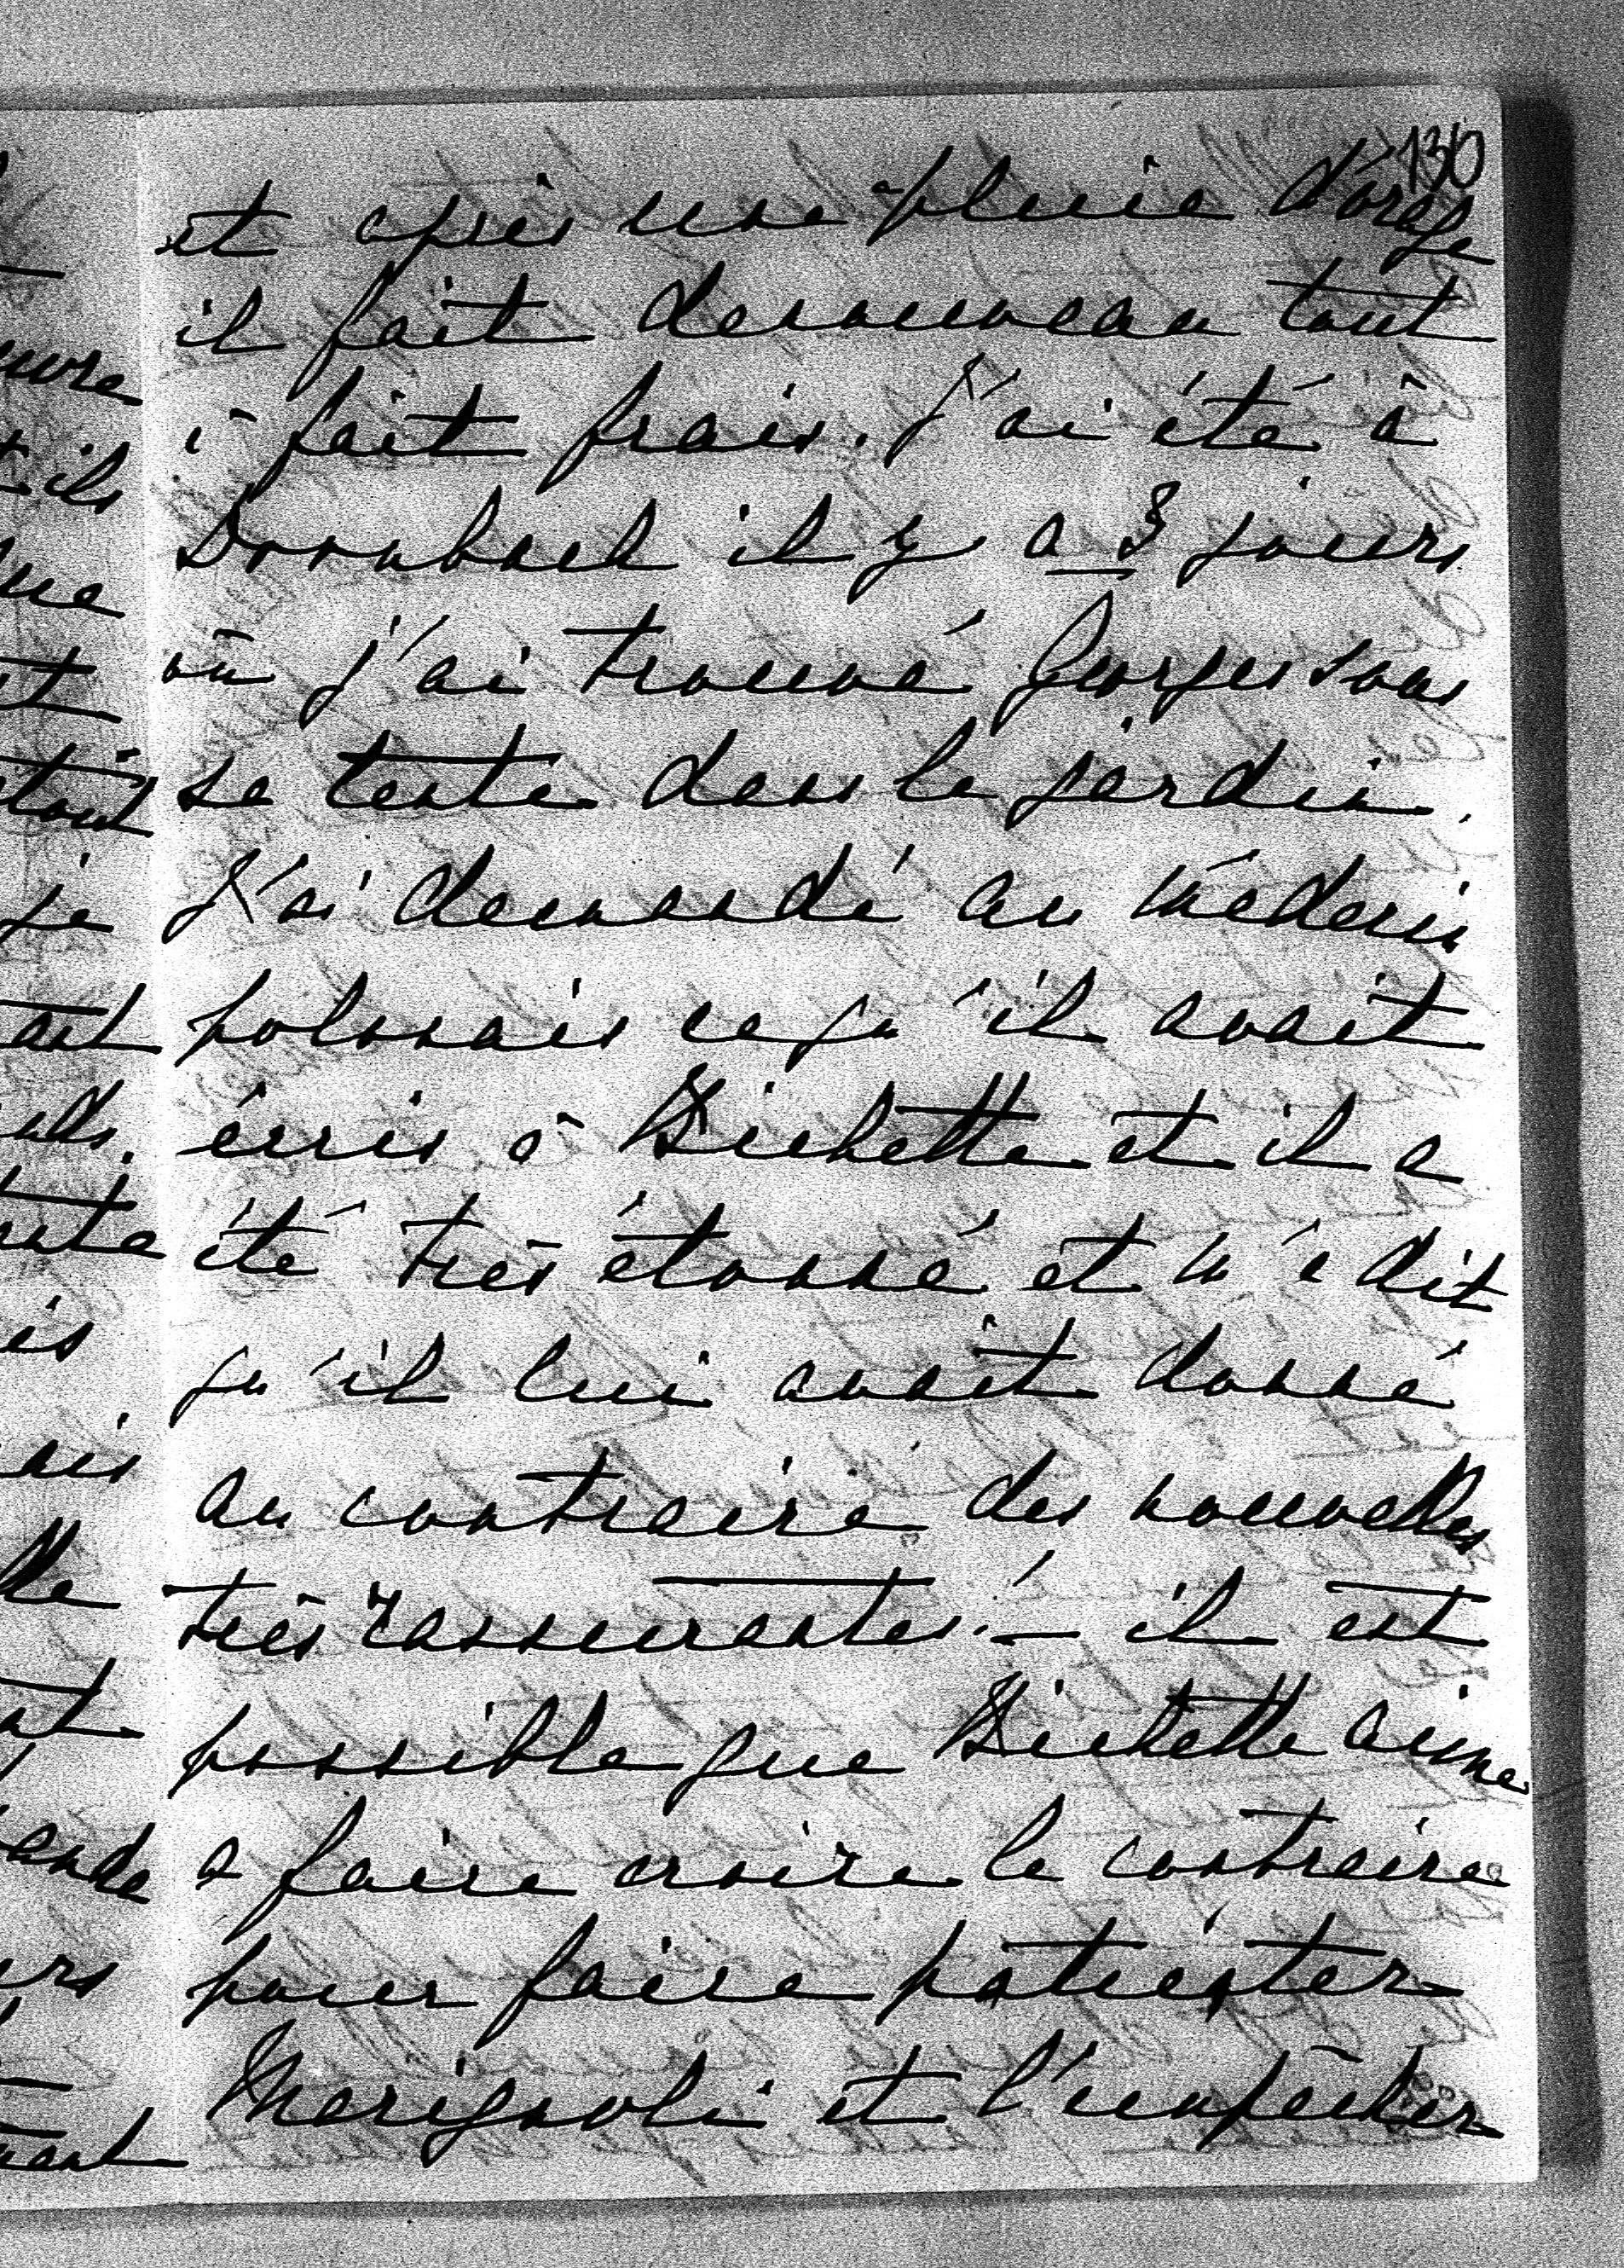 130
et après une pluie d'orage
il fait denouveau tout
à fait frais. J'ai été à
Dornbach il y a 3 jours
où j'ai trouvé Georges sous
sa tente dans le jardin.
J'ai demandé au médecin
polonais ce qu'il avait
écris à Bichette et il a
été très étonné et m'a dit
qu'il lui avait donné
au contraire des nouvelles
très rassurantes. — il est
possible que Bichette aime
a faire croire le contraire
pour faire patienter
Marignoli et l'empêcher